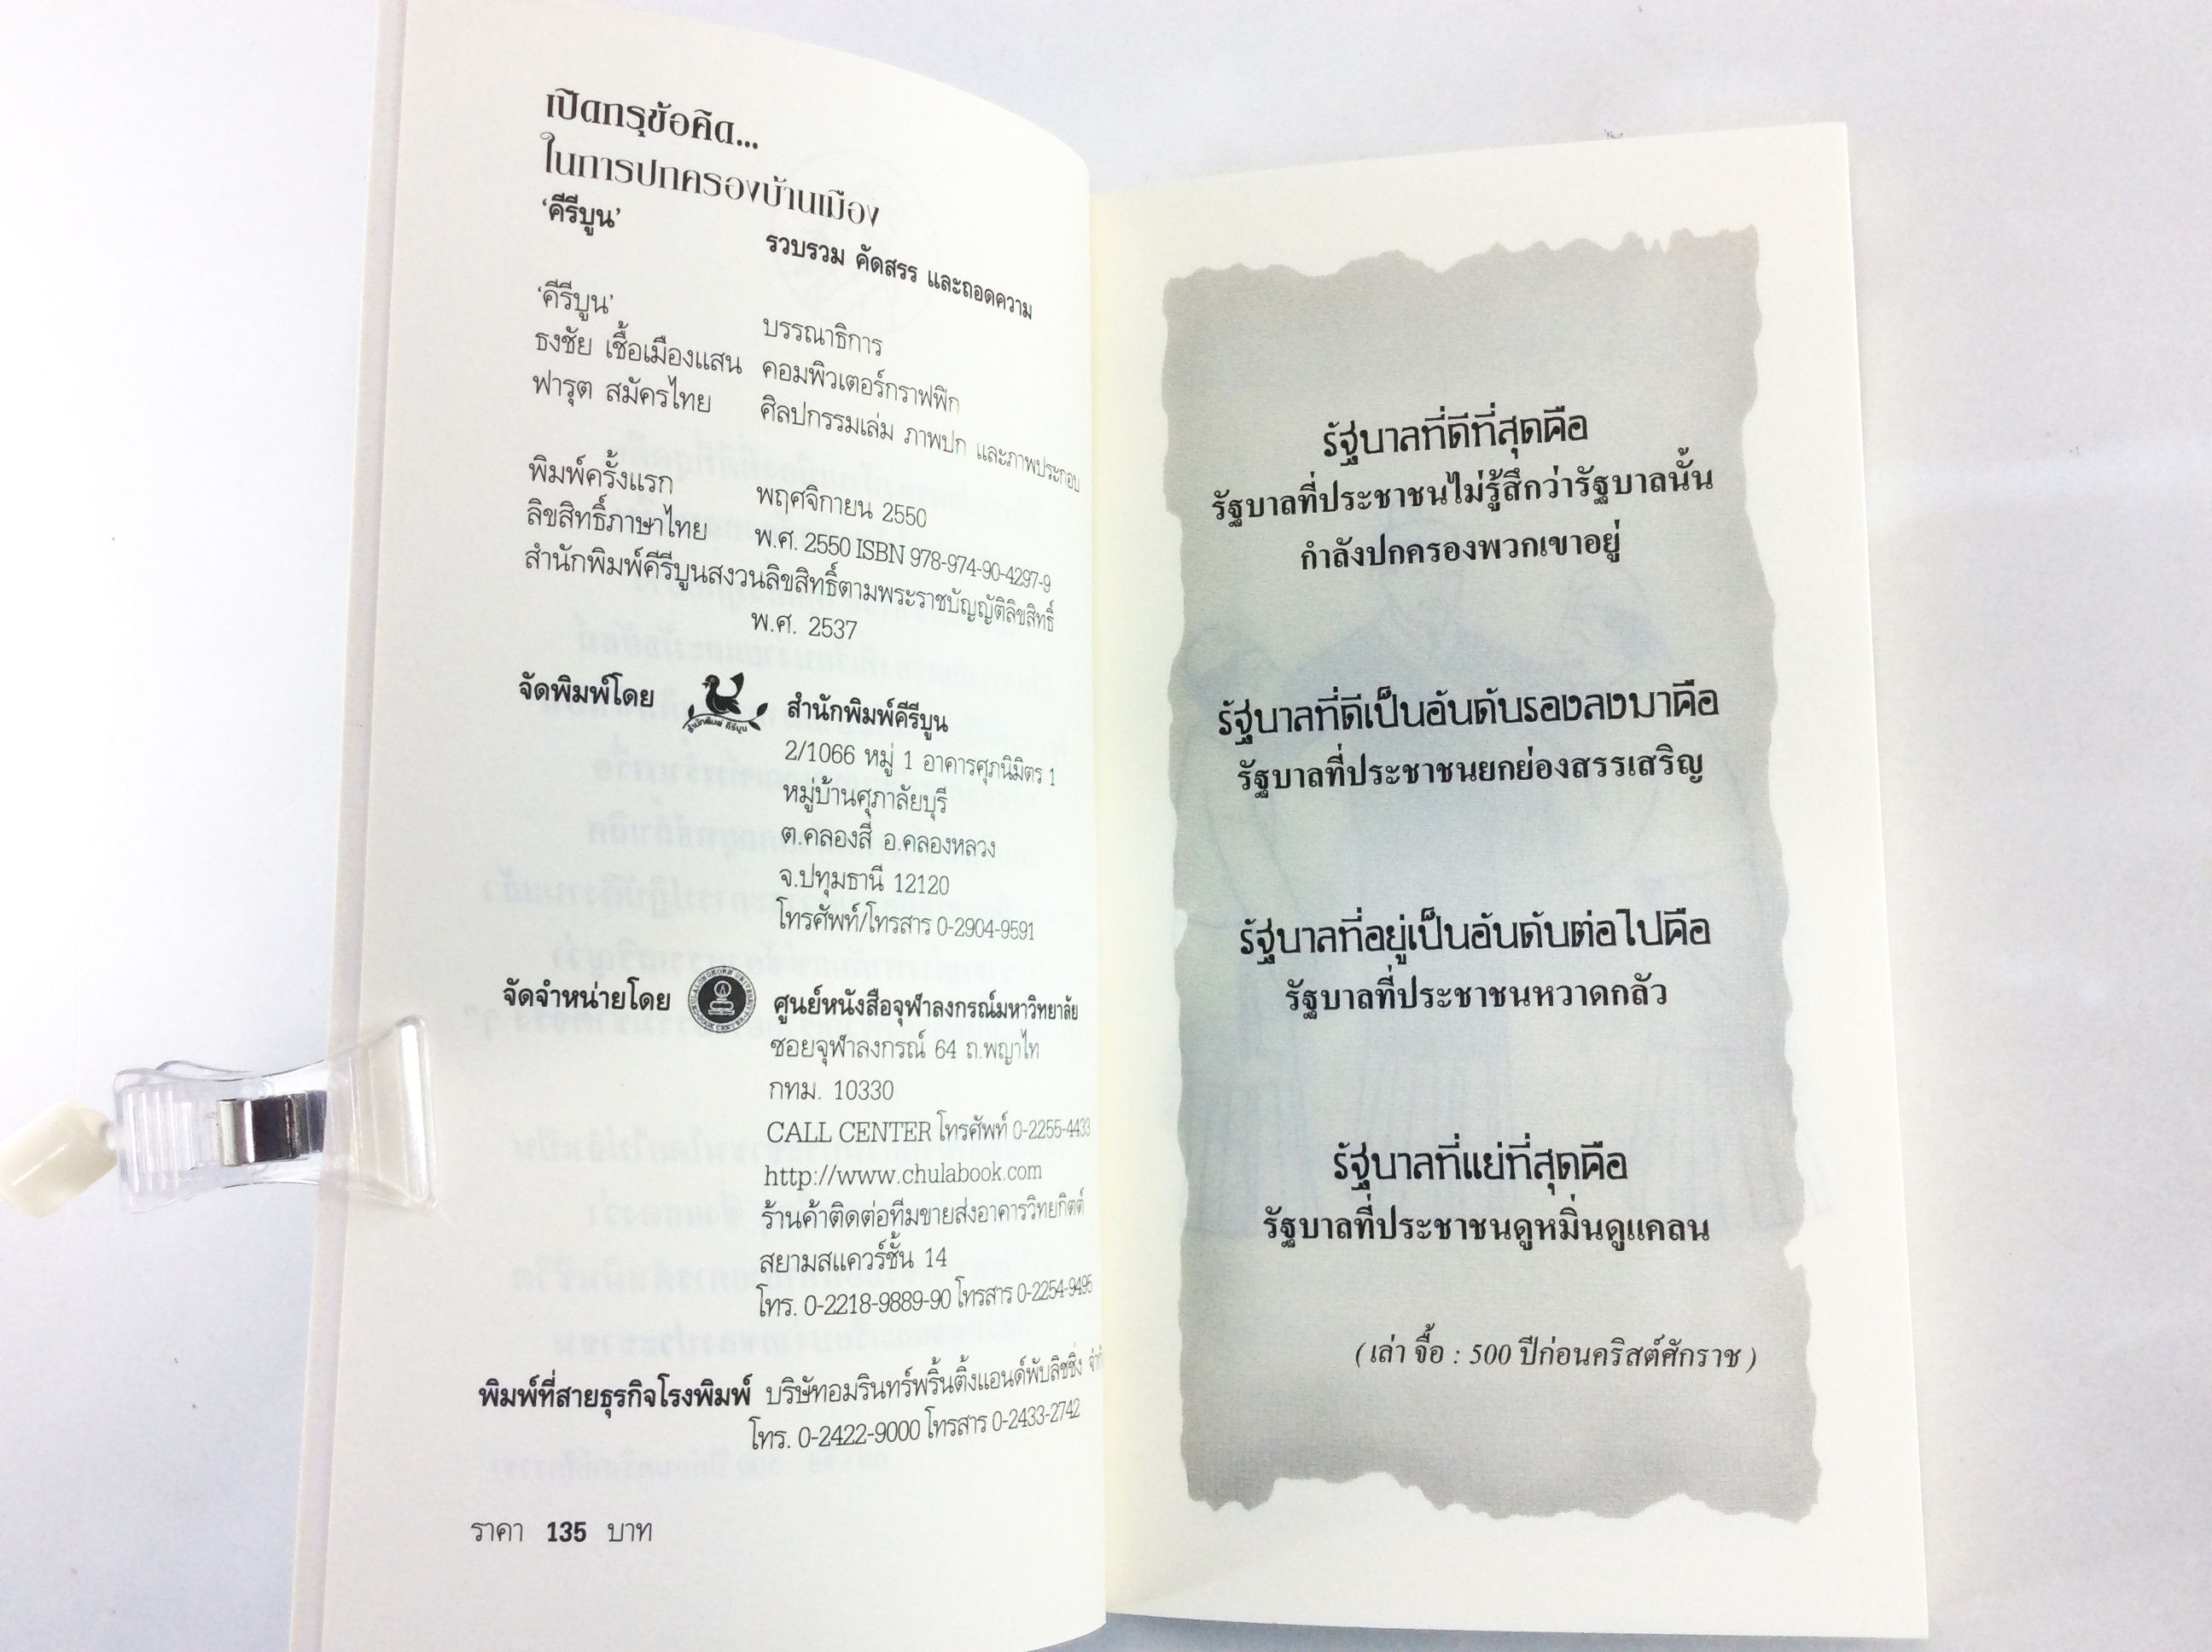 เปิดกรุข้อคิด...
ในการปกครองบ้านเมือง
‘คีรีบูน’ รวบรวม คัดสรร และถอดความ
‘คีรีบูน’ บรรณาธิการ
ธงชัย เชื้อเมืองแสน คอมพิวเตอร์กราฟฟิก
ฟารุต สมัครไทย ศิลปกรรมเล่ม ภาพปก และภาพประกอบ
พิมพ์ครั้งแรก พฤศจิกายน 2550
ลิขสิทธิ์ภาษาไทย พ.ศ. 2550 ISBN 978-974-90-4297-9
สำนักพิมพ์คีรีบูนสงวนลิขสิทธิ์ตามพระราชบัญญัติลิขสิทธิ์
พ.ศ. 2537
จัดพิมพ์โดย สำนักพิมพ์ คีรีบูน สำนักพิมพ์คีรีบูน
2/1066 หมู่ 1 อาคารศุภนิมิตร 1
หมู่บ้านศุภาลัยบุรี
ต.คลองสี่ อ.คลองหลวง
จ.ปทุมธานี 12120
โทรศัพท์/โทรสาร 0-2904-9591
จัดจำหน่ายโดย ศูนย์หนังสือจุฬาลงกรณ์มหาวิทยาลัย
ซอยจุฬาลงกรณ์ 64 ถ.พญาไท
กทม. 10330
CALL CENTER โทรศัพท์ 0-2255-4433
http://www.chulabook.com
ร้านค้าติดต่อทีมขายส่งอาคารวิทยกิตติ์
สยามสแควร์ชั้น 14
โทร. 0-2218-9889-90 โทรสาร 0-2254-9495
พิมพ์ที่สายธุรกิจโรงพิมพ์ บริษัทอมรินทร์พริ้นติ้งแอนด์พับลิชชิ่ง
โทร. 0-2422-9000 โทรสาร 0-2433-2742
ราคา 135 บาท
รัฐบาลที่ดีที่สุดคือ
รัฐบาลที่ประชาชนไม่รู้สึกว่ารัฐบาลนั้น
กำลังปกครองพวกเขาอยู่
รัฐบาลที่ดีเป็นอันดับรองลงมาคือ
รัฐบาลที่ประชาชนยกย่องสรรเสริญ
รัฐบาลที่อยู่เป็นอันดับต่อไปคือ
รัฐบาลที่ประชาชนหวาดกลัว
รัฐบาลที่แย่ที่สุดคือ
รัฐบาลที่ประชาชนดูหมิ่นดูแคลน
(เล่า จื้อ : 500 ปีก่อนคริสต์ศักราช)